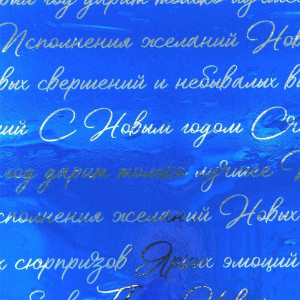 год дарит только лучшее
Исполнения желаний Нов
вых свершений и небывалых в
ний С Новым годом Ся
год дарит только лучшее
сполнения желаний Новых
х сюрпризов Ярких эмоций